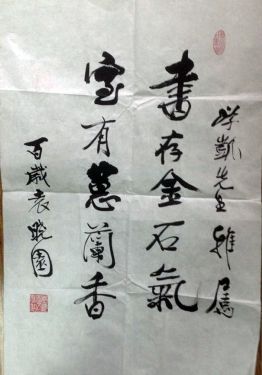 学凯先生雅属
书存金石氣
室有蕙蘭香
百歲袁晓園